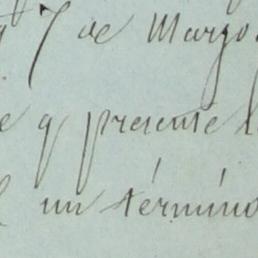 7 de Marzo
q presente
un término